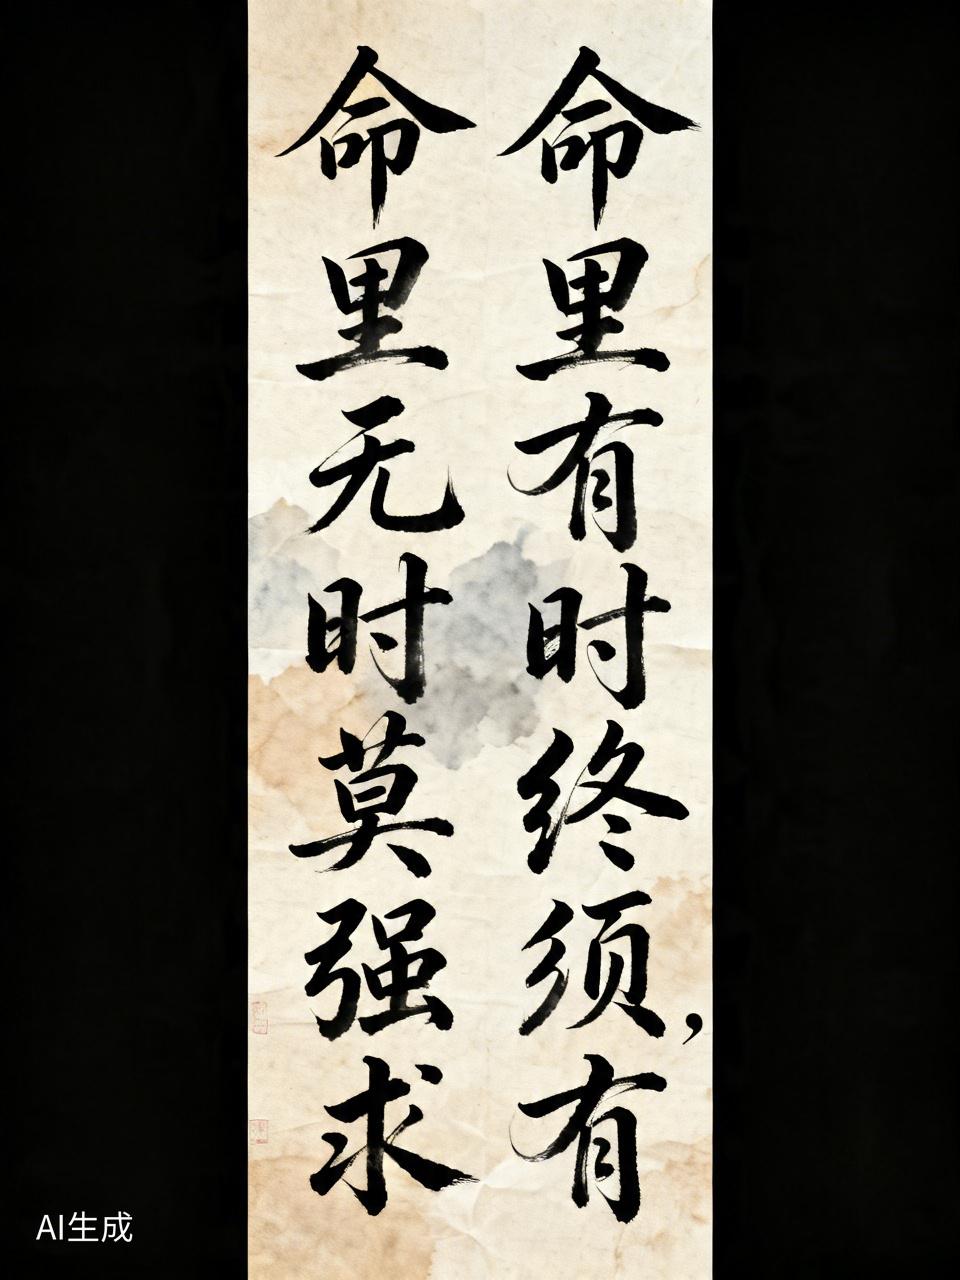 命里有时终须,有
命里无时莫强求
AI生成